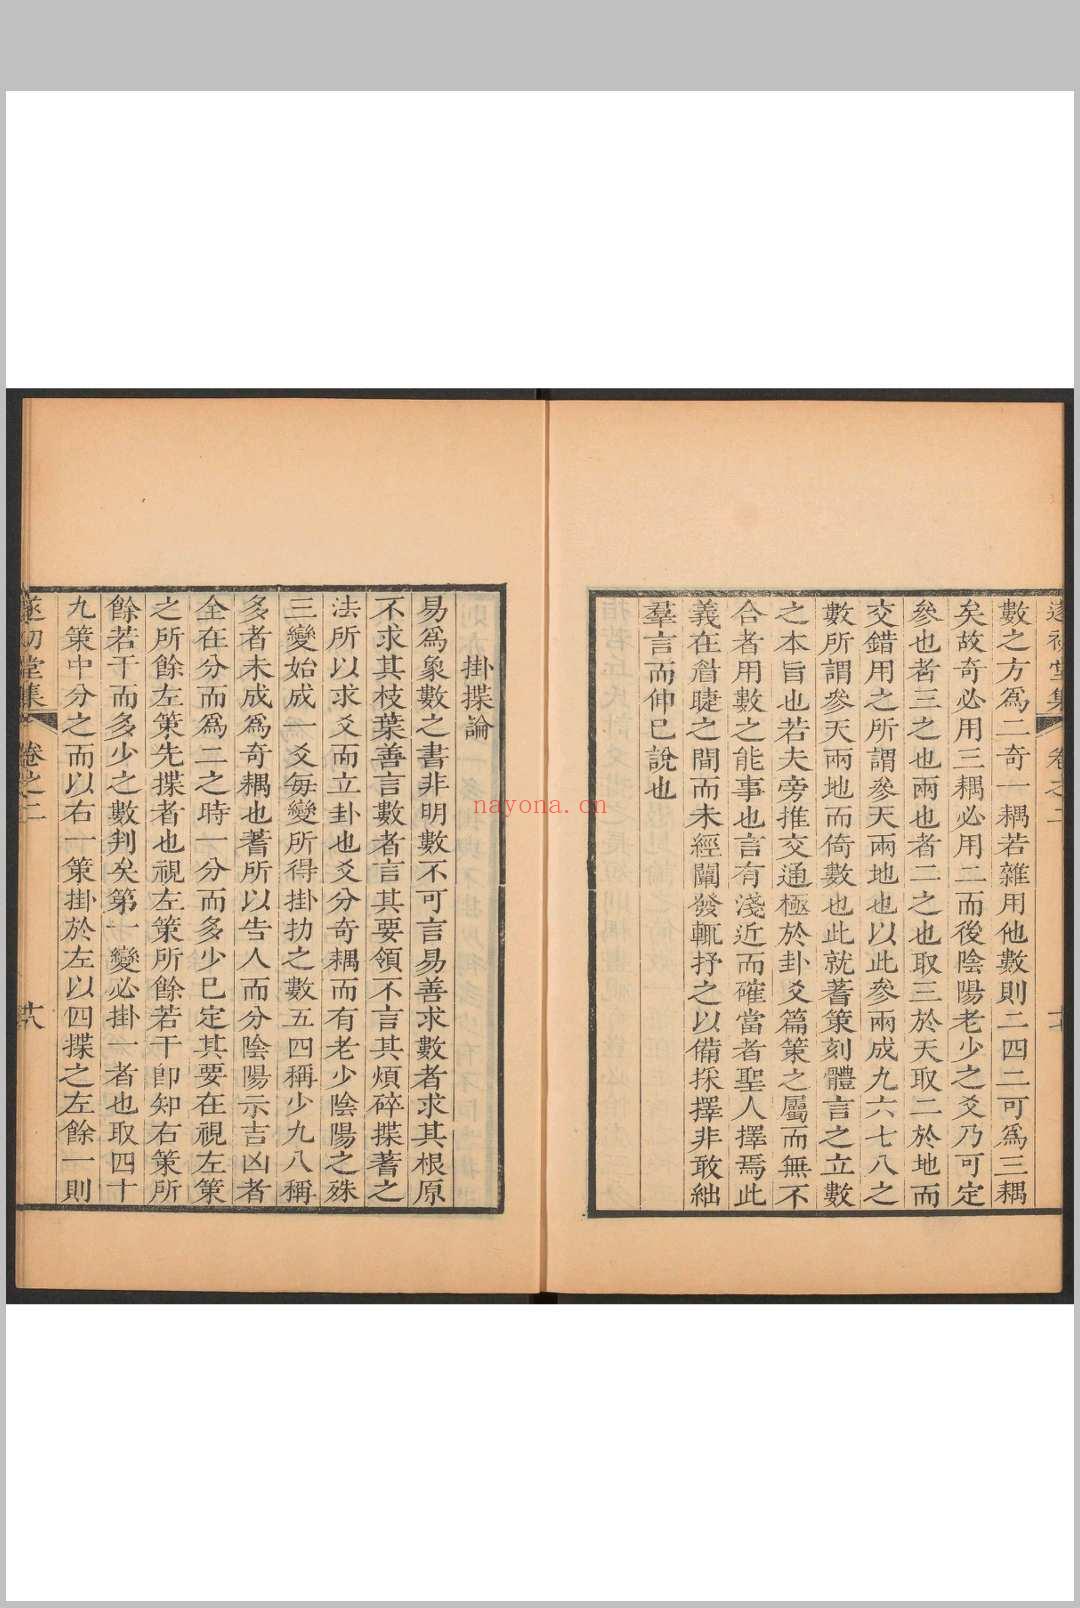 遂初堂集 卷之二
數之方爲二奇一耦若雜用他數則二四二可爲三耦
矣故奇必用三耦必用二而後陰陽老少之爻乃可定
參也者三之也兩也者二之也取三於天取二於地而
交錯用之所謂參天兩地也以此參兩成九六七八之
數所謂參天兩地而倚數也此就蓍策刻體言之立數
之本旨也若夫旁推交通極於卦爻篇策之屬而無不
合者用數之能事也言有淺近而確當者聖人擇焉此
義在眉睫之間而未經闡發輒抒之以備採擇非敢絀
羣言而伸已說也
掛揲論
易爲象數之書非明數不可言易善求數者求其根原
不求其枝葉善言數者言其要領不言其煩碎揲蓍之
法所以求爻而立卦也爻分奇耦而有老少陰陽之殊
三變始成一爻每變所得掛扐之數五四稱少九八稱
多者未成爲奇耦也蓍所以告人而分陰陽示吉凶者
全在分而爲二之時一分而多少已定其要在視左策
之所餘左策先揲者也視左策所餘若干卽知右策所
餘若干而多少之數判矣第一變必掛一者也取四十
九策中分之而以右一策掛於左以四揲之左餘一則
遂初堂集 卷之二 十八
nayona.cn